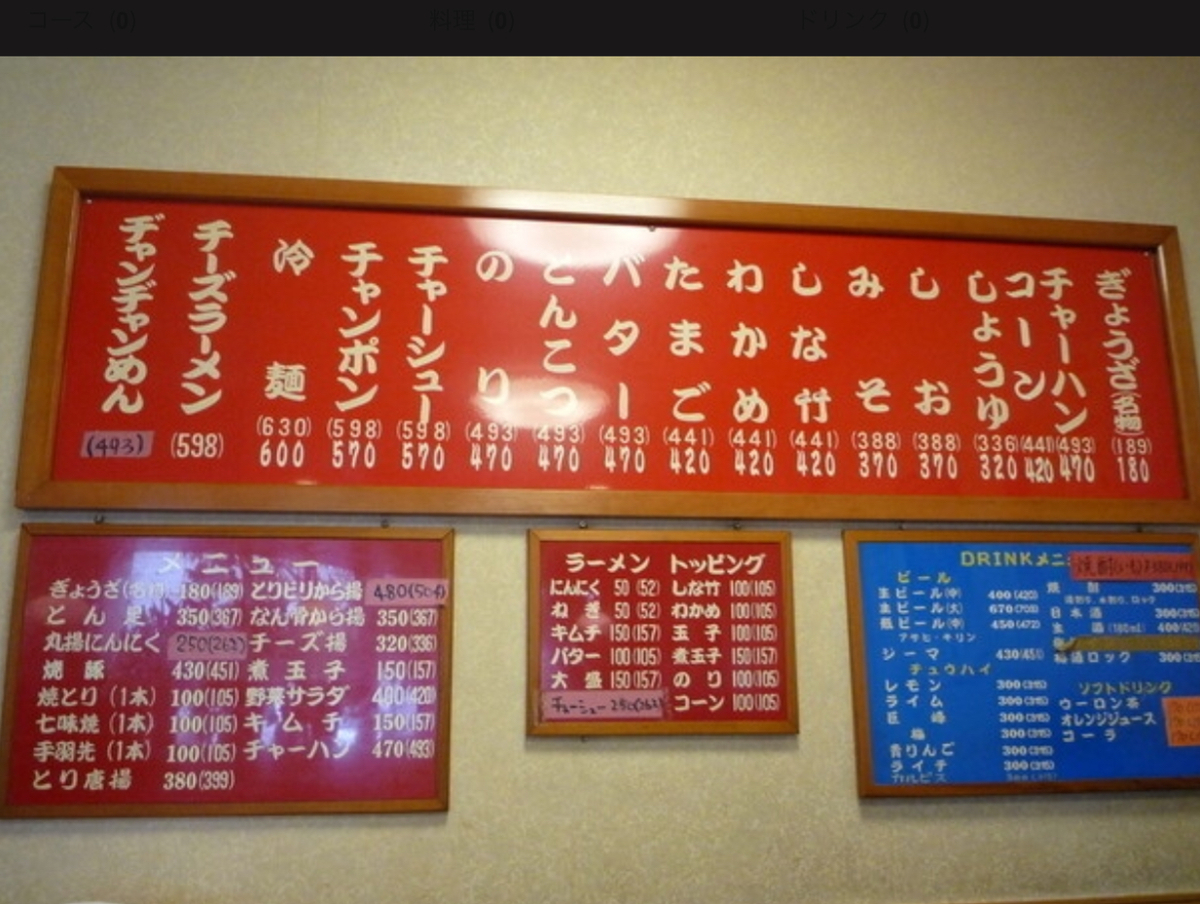 コース (0)
料理 (0)
ドリンク (0)
ぎょうざ(名物) (189) 180
チャーハン (493) 470
コーン (441) 420
しょうゆ (336) 320
しお (388) 370
みそ (388) 370
しな竹 (441) 420
わかめ (441) 420
たまご (441) 420
バター (493) 470
とんこつ (493) 470
のり (493) 470
チャーシュー (598) 570
チャンポン (598) 570
冷麺 (630) 600
チーズラーメン (598)
ヂャンヂャンめん (493)
メニュー
ぎょうざ(名物) 180(189)
とん足 350(367)
丸揚にんにく 250(262)
焼豚 430(451)
焼とり(1本) 100(105)
七味焼(1本) 100(105)
手羽先(1本) 100(105)
とり唐揚 380(399)
とりピリから揚 480(504)
なん骨から揚 350(367)
チーズ揚 320(336)
煮玉子 150(157)
野菜サラダ 400(420)
キムチ 150(157)
チャーハン 470(493)
ラーメン トッピング
にんにく 50(52)
ねぎ 50(52)
キムチ 150(157)
バター 100(105)
大盛 150(157)
チャーシュー 250(262)
しな竹 100(105)
わかめ 100(105)
玉子 100(105)
煮玉子 150(157)
のり 100(105)
コーン 100(105)
DRINKメニ
ビール
生ビール(中) 400(420)
生ビール(大) 670(703)
瓶ビール(中) 450(472)
アサヒ・キリン
ジーマ 430(451)
チュウハイ
レモン 300(315)
ライム 300(315)
巨峰 300(315)
梅 300(315)
青りんご 300(315)
ライチ 300(315)
カルピス 300(315)
焼酎 300(315
日本酒 300(315
生酒(180ml) 400(420
梅酒ロック 300(315
ソフトドリンク
ウーロン茶
オレンジジュース
コーラ